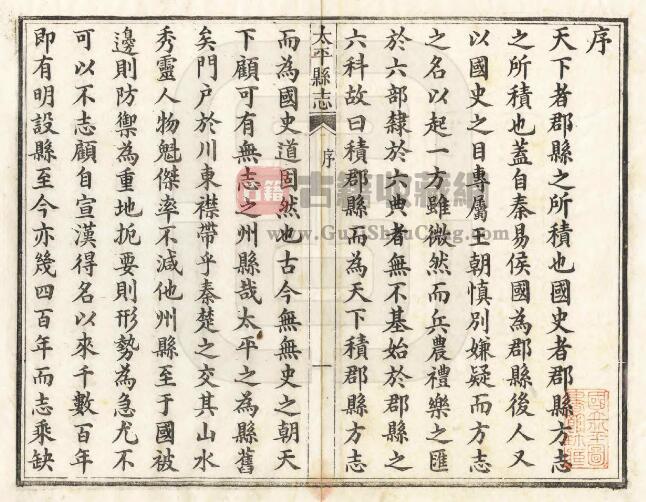 序
天下者郡縣之所積也國史者郡縣方志
之所積也蓋自秦易侯國為郡縣後人又
以國史之目專屬王朝慎別嫌疑而方志
之名以起一方雖微然而兵農禮樂之匯
於六部隸於六典者無不基始於郡縣之
六科故曰積郡縣而為天下積郡縣方志
太平縣志
序
一
而為國史道固然也古今無無史之朝天
下顧可有無志之州縣哉太平之為縣舊
矣門户於川東襟帶乎秦楚之交其山水
秀靈人物魁傑率不減他州縣至于國被
邊則防禦為重地扼要則形勢為急尤不
可以不志顧自宣漢得名以來千數百年
即有明設縣至今亦幾四百年而志乘缺
古籍
古籍收藏網
www.GuJiShouCang.com